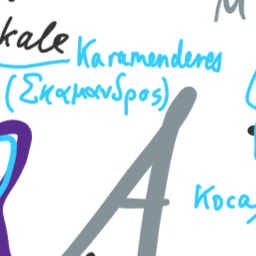 kale
Karamenderes
(Σκαμανδρος)
A